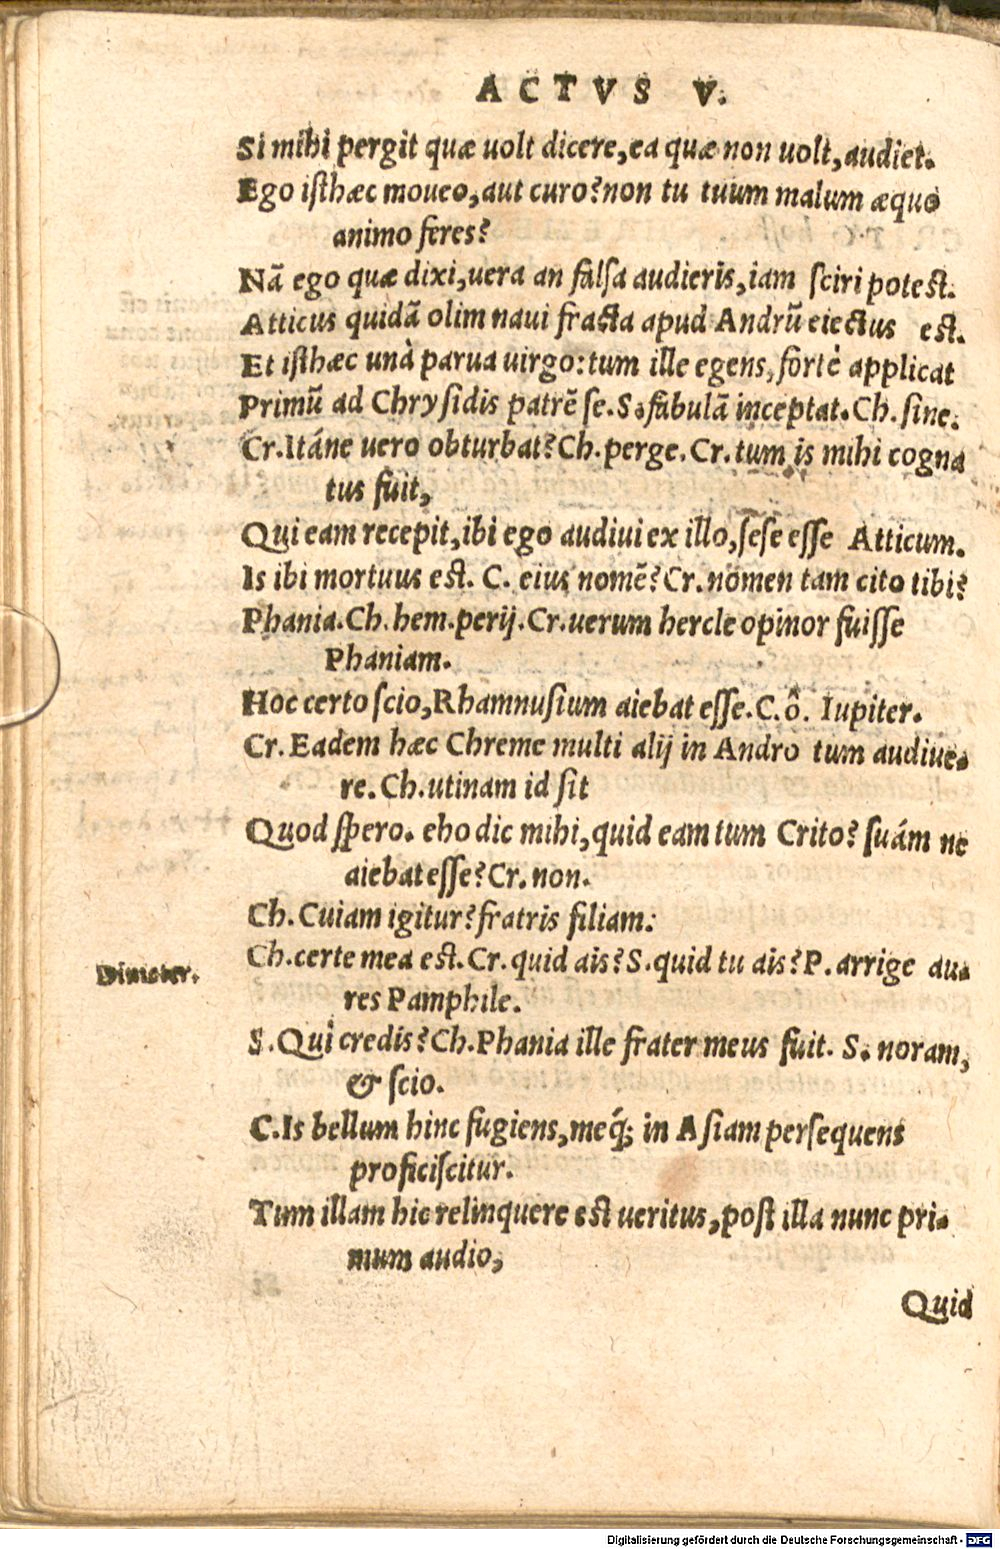 ACTVS V.
Si mihi pergit quæ uolt dicere, ea quæ non uolt, audiet.
Ego isthæc moueo, aut curo? non tu tuum malum æquo
animo feres?
Nã ego quæ dixi, uera an falsa audieris, iam sciri potest.
Atticus quidã olim naui fracta apud Andrũ eiectus est.
Et isthæc unà parua uirgo: tum ille egens, fortè applicat
Primũ ad Chrysidis patrẽ se. S. fabulã inceptat. Ch. sine.
Cr. Itáne uero obturbat? Ch. perge. Cr. tum is mihi cogna
tus fuit,
Qui eam recepit, ibi ego audiui ex illo, sese esse Atticum.
Is ibi mortuus est. C. eius nomẽ? Cr. nomen tam cito tibi?
Phania. Ch. hem. perij. Cr. uerum hercle opinor fuisse
Phaniam.
Hoc certo scio, Rhamnusium aiebat esse. C. ô. Iupiter.
Cr. Eadem hæc Chreme multi alij in Andro tum audiue-
re. Ch. utinam id sit
Quod spero. eho dic mihi, quid eam tum Crito? suám ne
aiebat esse? Cr. non.
Ch. Cuiam igitur? fratris filiam.
Ch. certe mea est. Cr. quid ais? S. quid tu ais? P. arrige au-
res Pamphile.
Dimeter.
S. Qui credis? Ch. Phania ille frater meus fuit. S. noram,
& scio.
C. Is bellum hinc fugiens, meq́; in Asiam persequens
proficiscitur.
Tum illam hic relinquere est ueritus, post illa nunc pri-
mum audio,
Quid
Digitalisierung gefördert durch die Deutsche Forschungsgemeinschaft - DFG